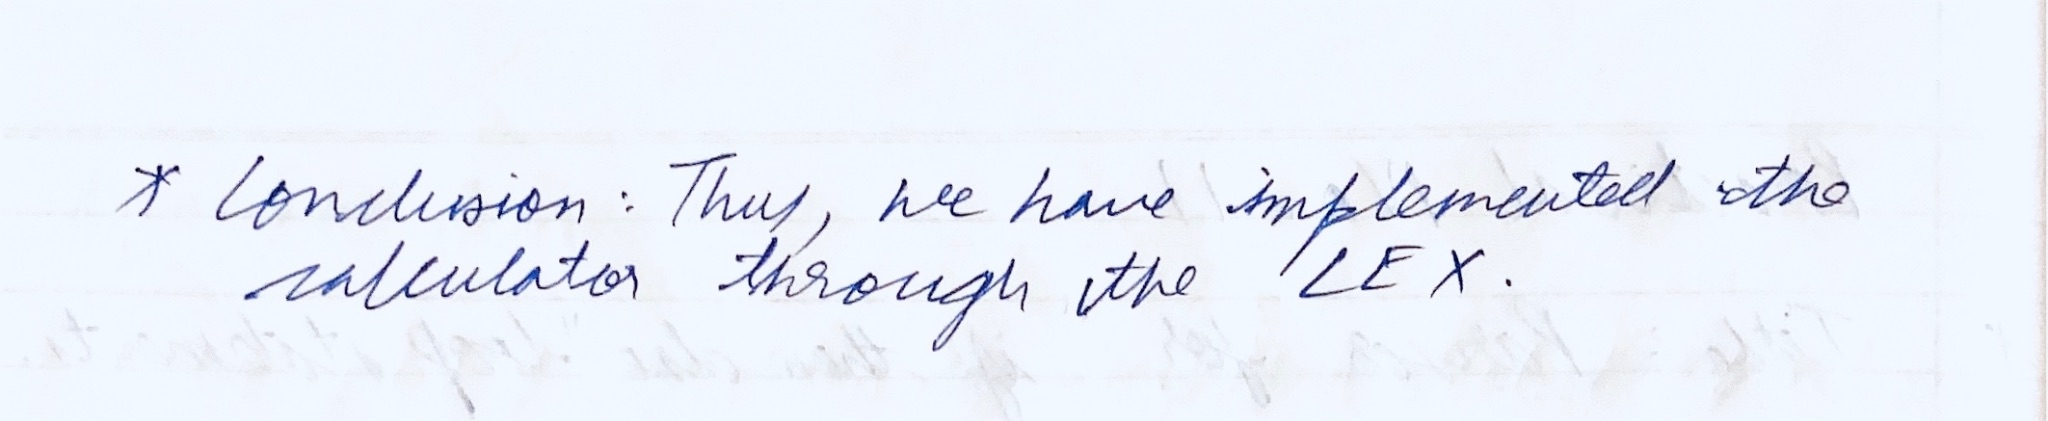 * Conclusion: Thus, we have implemented the
calculator through the LEX.